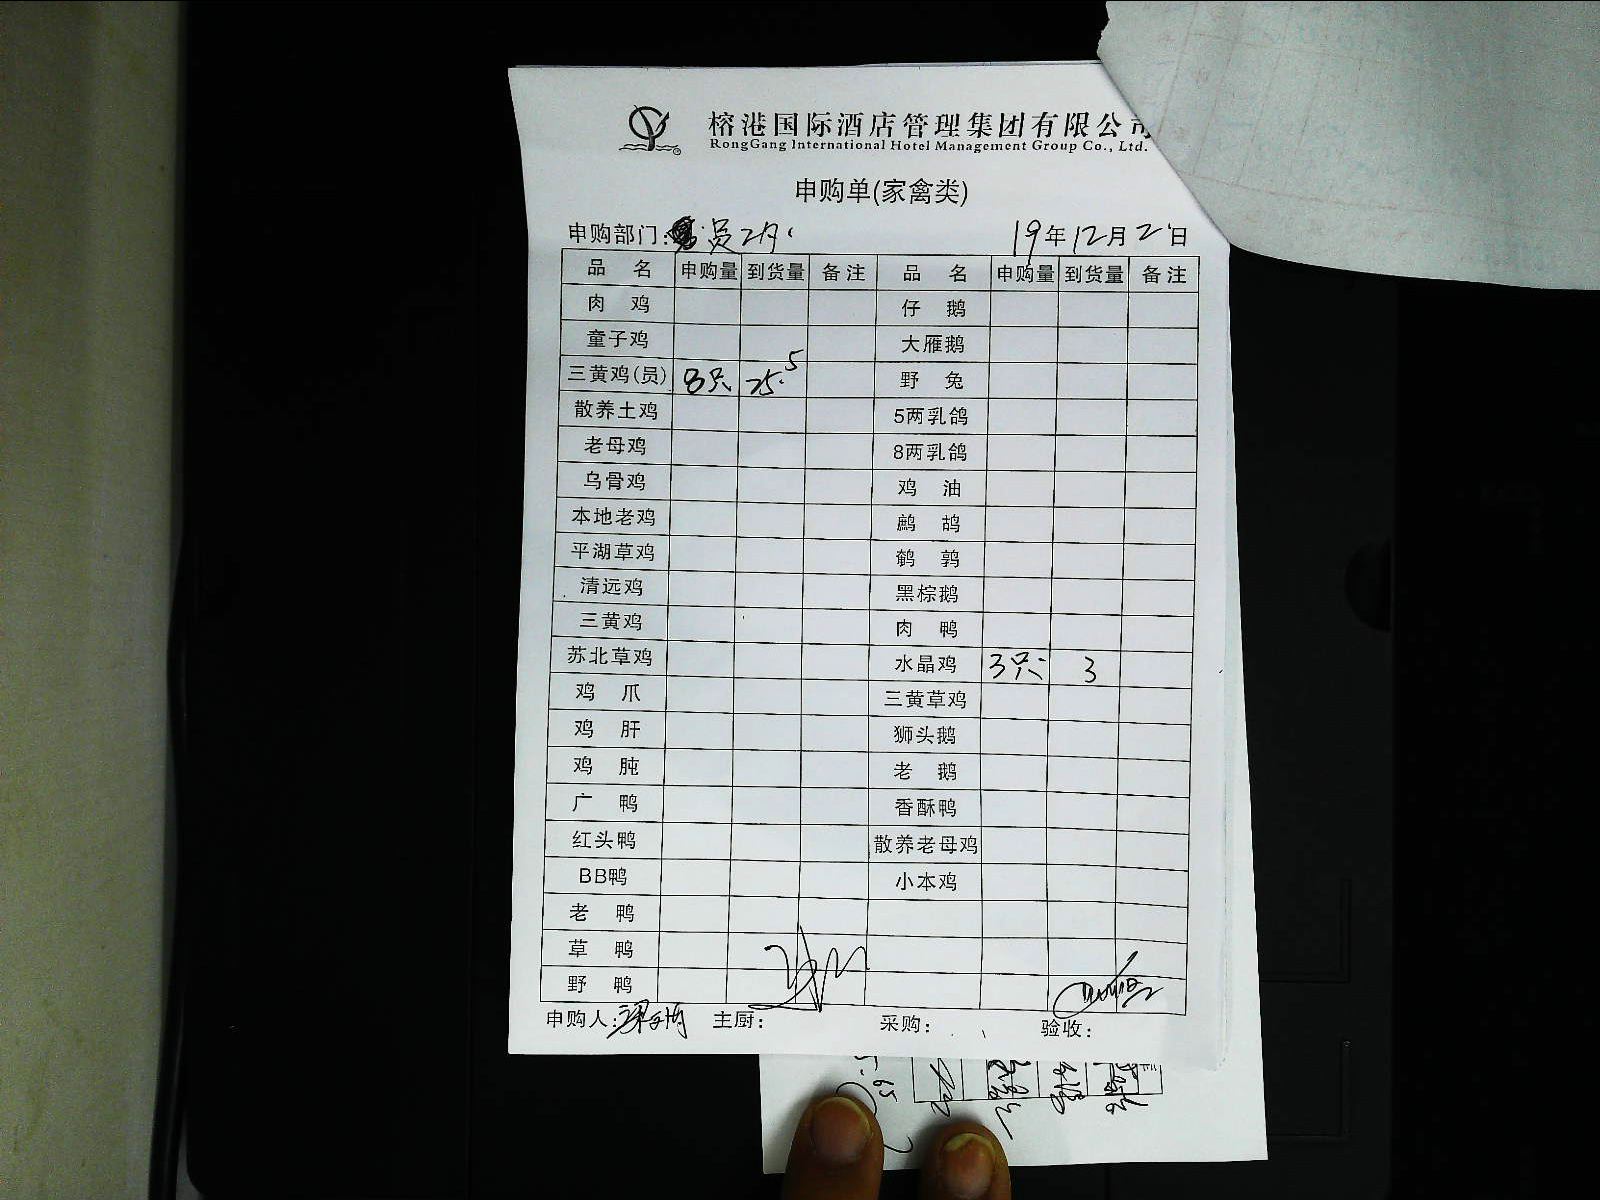 榕港国际酒店管理集团有限公司
RongGang International Hotel Management Group Co., Ltd.
申购单(家禽类)
申购部门: 员工 19年12月2日
品名 申购量 到货量 备注 品名 申购量 到货量 备注
肉鸡 仔鹅
童子鸡 大雁鹅
三黄鸡(员) 8只 25.5 野兔
散养土鸡 5两乳鸽
老母鸡 8两乳鸽
乌骨鸡 鸡油
本地老鸡 鹧鸪
平湖草鸡 鹌鹑
清远鸡 黑棕鹅
三黄鸡 肉鸭
苏北草鸡 水晶鸡 3只 3
鸡爪 三黄草鸡
鸡肝 狮头鹅
鸡肫 老鹅
广鸭 香酥鸭
红头鸭 散养老母鸡
BB鸭 小本鸡
老鸭
草鸭
野鸭
申购人: 主厨: 采购: 验收: